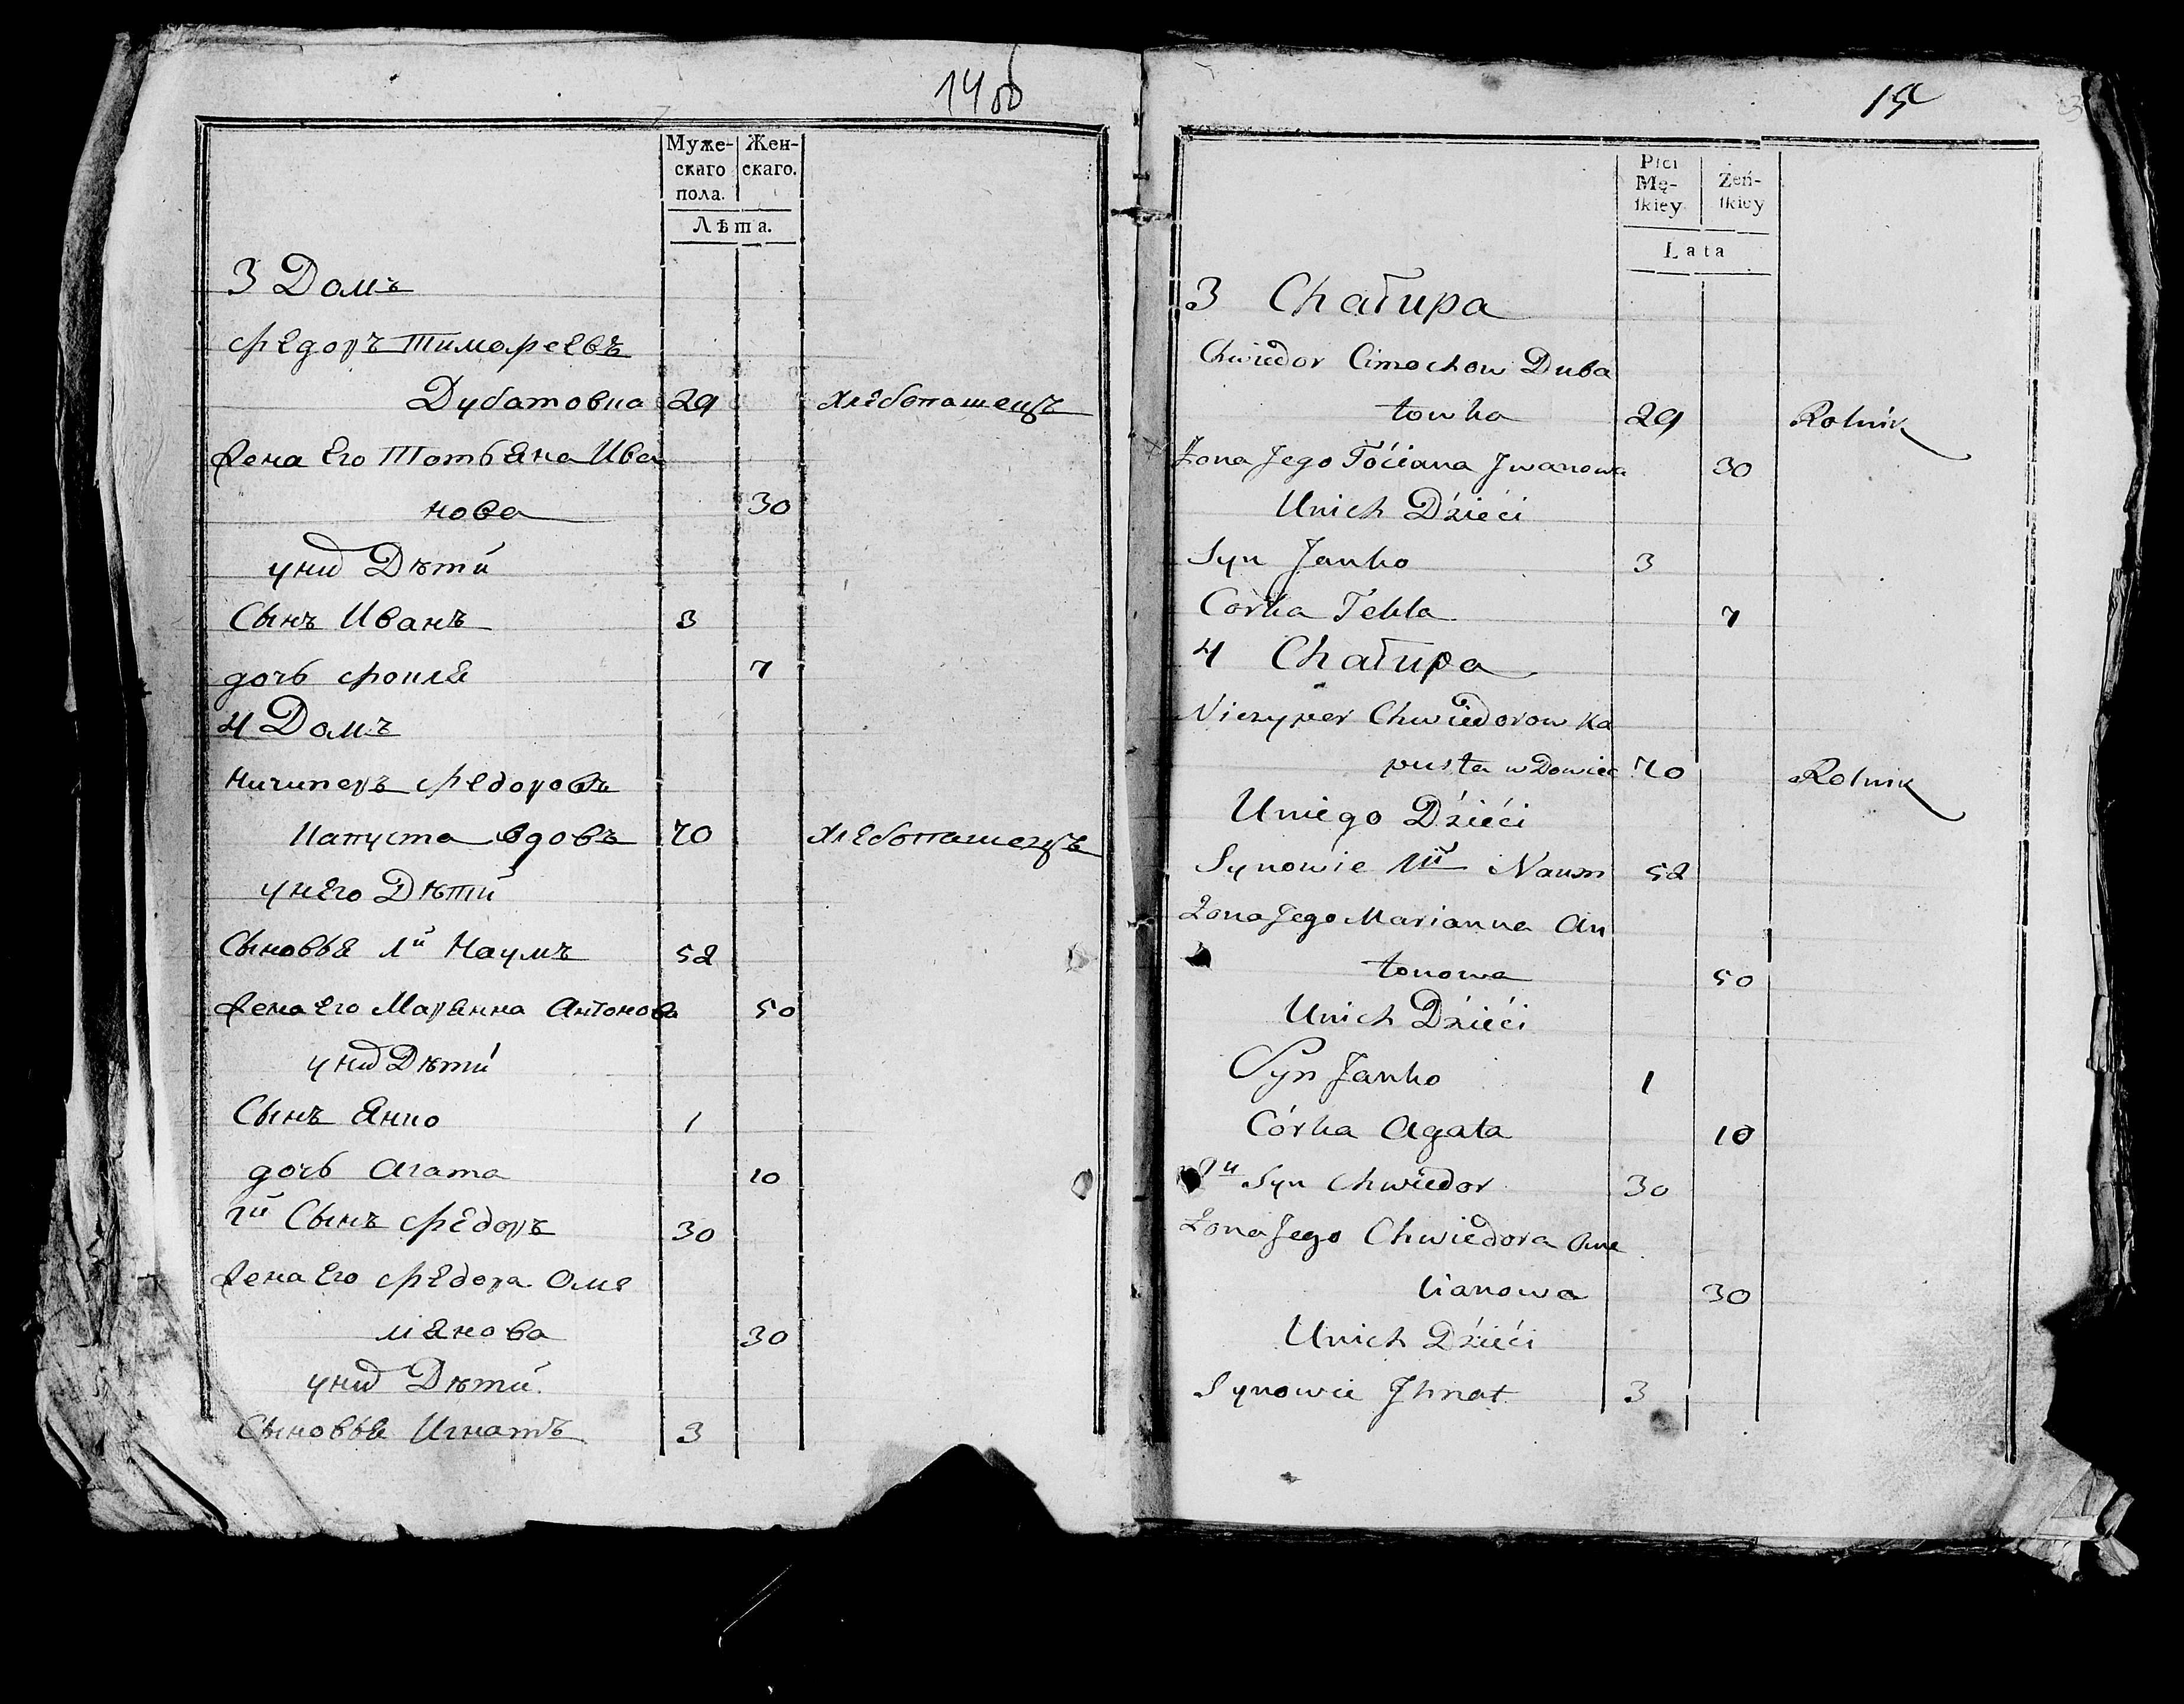 14 об
Муже-
скаго
пола.
Жен-
скаго.
Лѣта.
3 Домъ
Федоръ Тимофеевъ
Дубатовка 29 Хлебопашецъ
Жена Его Татьяна Ива
нова 30
у них Дѣти
Сынъ Иванъ 3
дочь 7
4 Домъ
Ничиперъ Федоровъ
Капуста вдовъ 70 Хлебопашецъ
у него Дѣти
Сыновья 1й Наумъ 52
Жена Его Марянна Антонова 50
у них Дѣти
Сынъ Янко 1
дочь Агата 10
2й Сынъ Федоръ 30
Жена Его Федора Оме
лянова 30
у них Дѣти
Сыновья Игнатъ 3
15
Płci
Mę-
ſkiey
Żeń-
ſkiey
Lata
3 Chałupa
Chwiedor Cimochow Duba
towka 29 Rolnik
Żona Jego Taciana Jwanowa 30
Unich Dzieći
Syn Janko 3
Corka Tekla 7
4 Chałupa
Niczyper Chwiedorow Ka
pusta wdowiec 70 Rolnik
Uniego Dzieći
Synowie 1й Naum 52
Żona Jego Marianna An
tonowa 50
Unich Dzieći
Syn Janko 1
Córka Agata 10
2й Syn Chwiedor 30
Żona Jego Chwiedora Ome
lianowa 30
Unich Dzieći
Synowie Jhnat 3